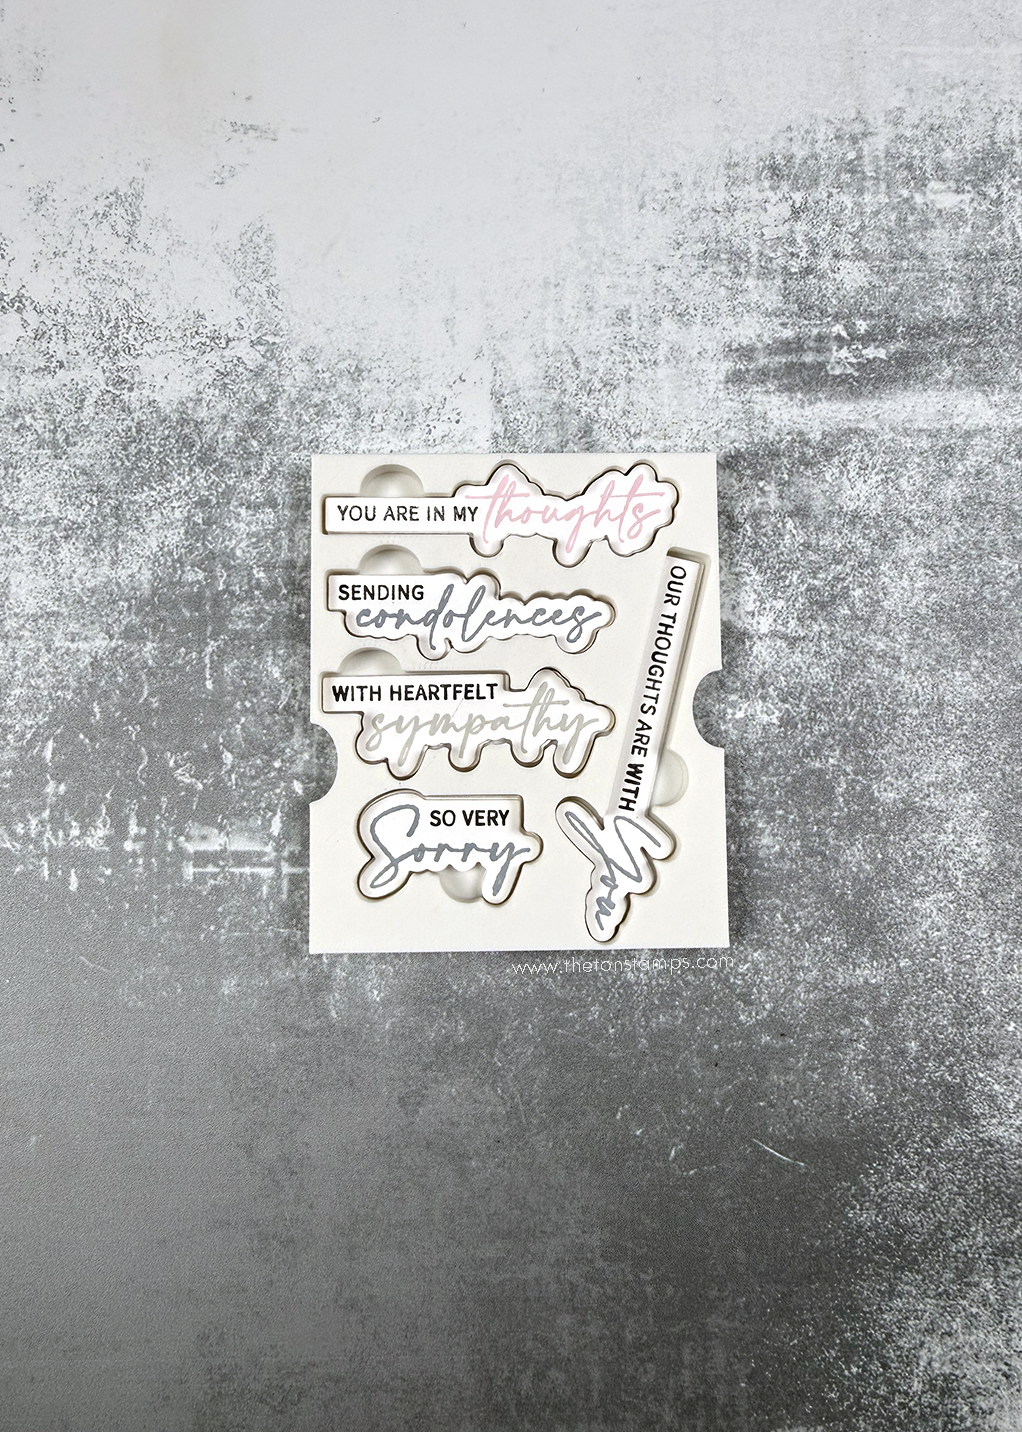 YOU ARE IN MY thoughts
SENDING
condolences
WITH HEARTFELT
sympathy
SO VERY
Sorry
OUR THOUGHTS ARE WITH
You
www.thetonstamps.com